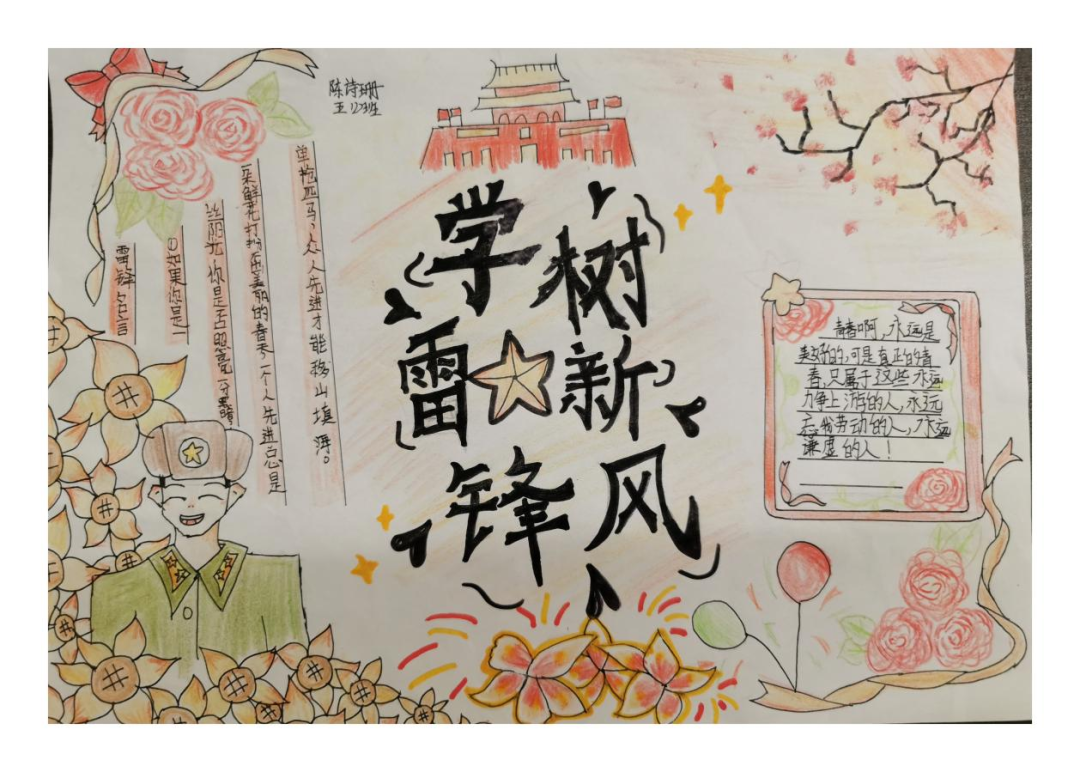 陈诗珊
五(2)班
学雷锋
树新风
雷锋名言
①如果你是一
丝阳光 你是否照亮一分黑暗
朵鲜花打扮不美丽的春天一个人先进总是
单枪匹马,众人先进才能移山填海。
青春啊,永远是
美好的,可是真正的青
春,只属于这些永远
力争上游的人,永远
忘我劳动的人,永远
谦虚的人!